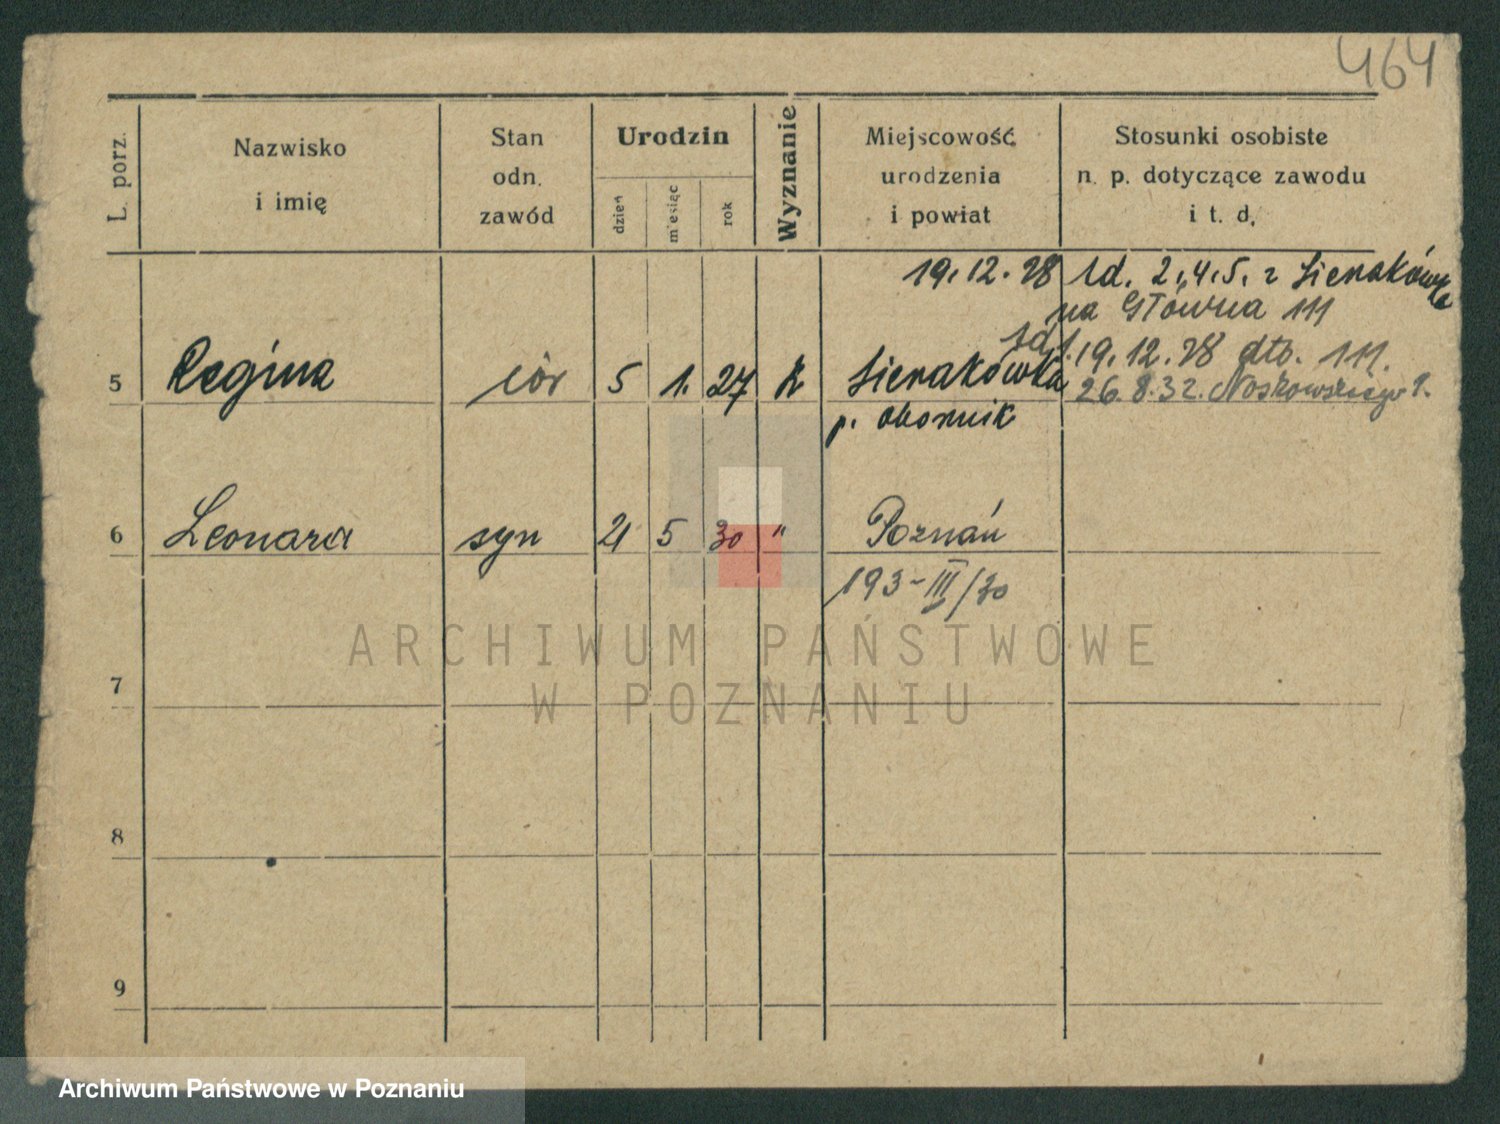 464
L. porz.
Nazwisko
i imię
Stan
odn.
zawód
Urodzin
dzień
miesiąc
rok
Wyznanie
Miejscowość
urodzenia
i powiat
Stosunki osobiste
n. p. dotyczące zawodu
i t. d.
19.12.28 2.4.5. z Sienakówka
na Główna 111
19.12.28 dto. 111.
26.8.32. Noskowskiego
5 Regina cór 5 1. 27 k Sienakówka
p. obornik
6 Leonard syn 21 5 30 " Poznań
193-III/30
7
8
9
ARCHIWUM PAŃSTWOWE
W POZNANIU
Archiwum Państwowe w Poznaniu